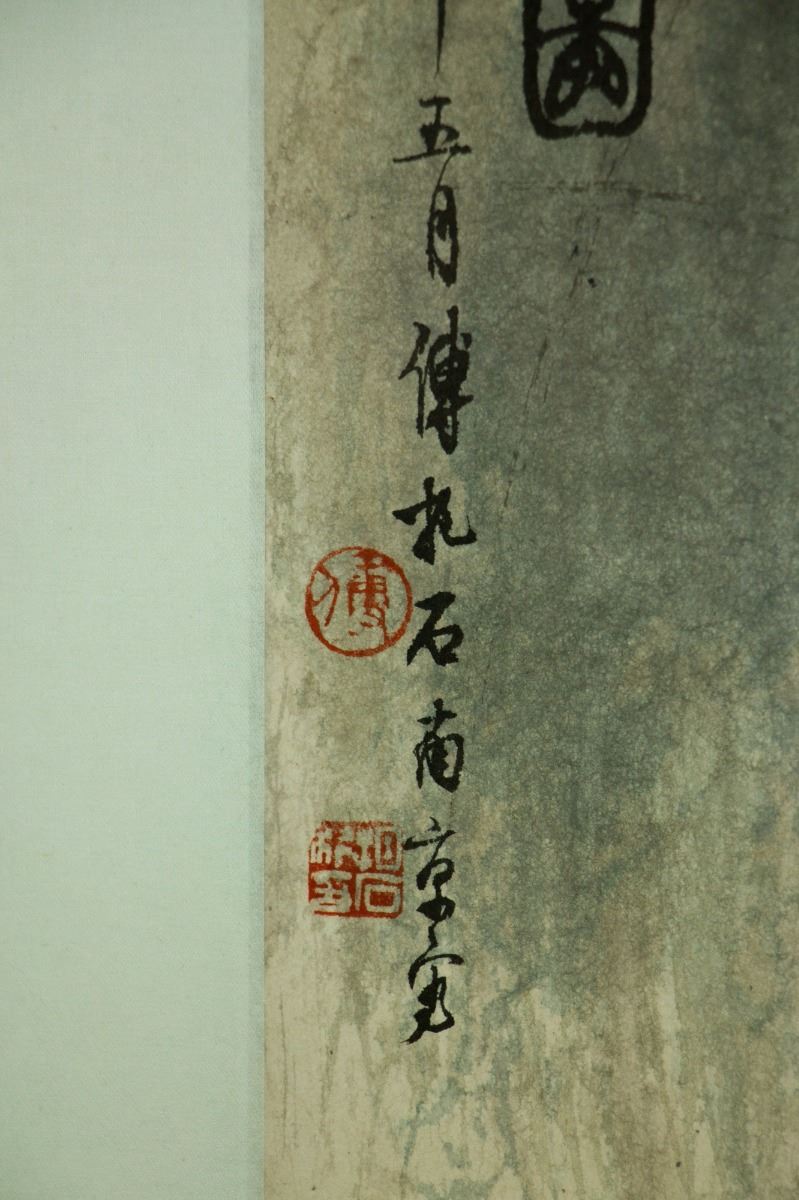 五月傅抱石南京寫
傅
抱石